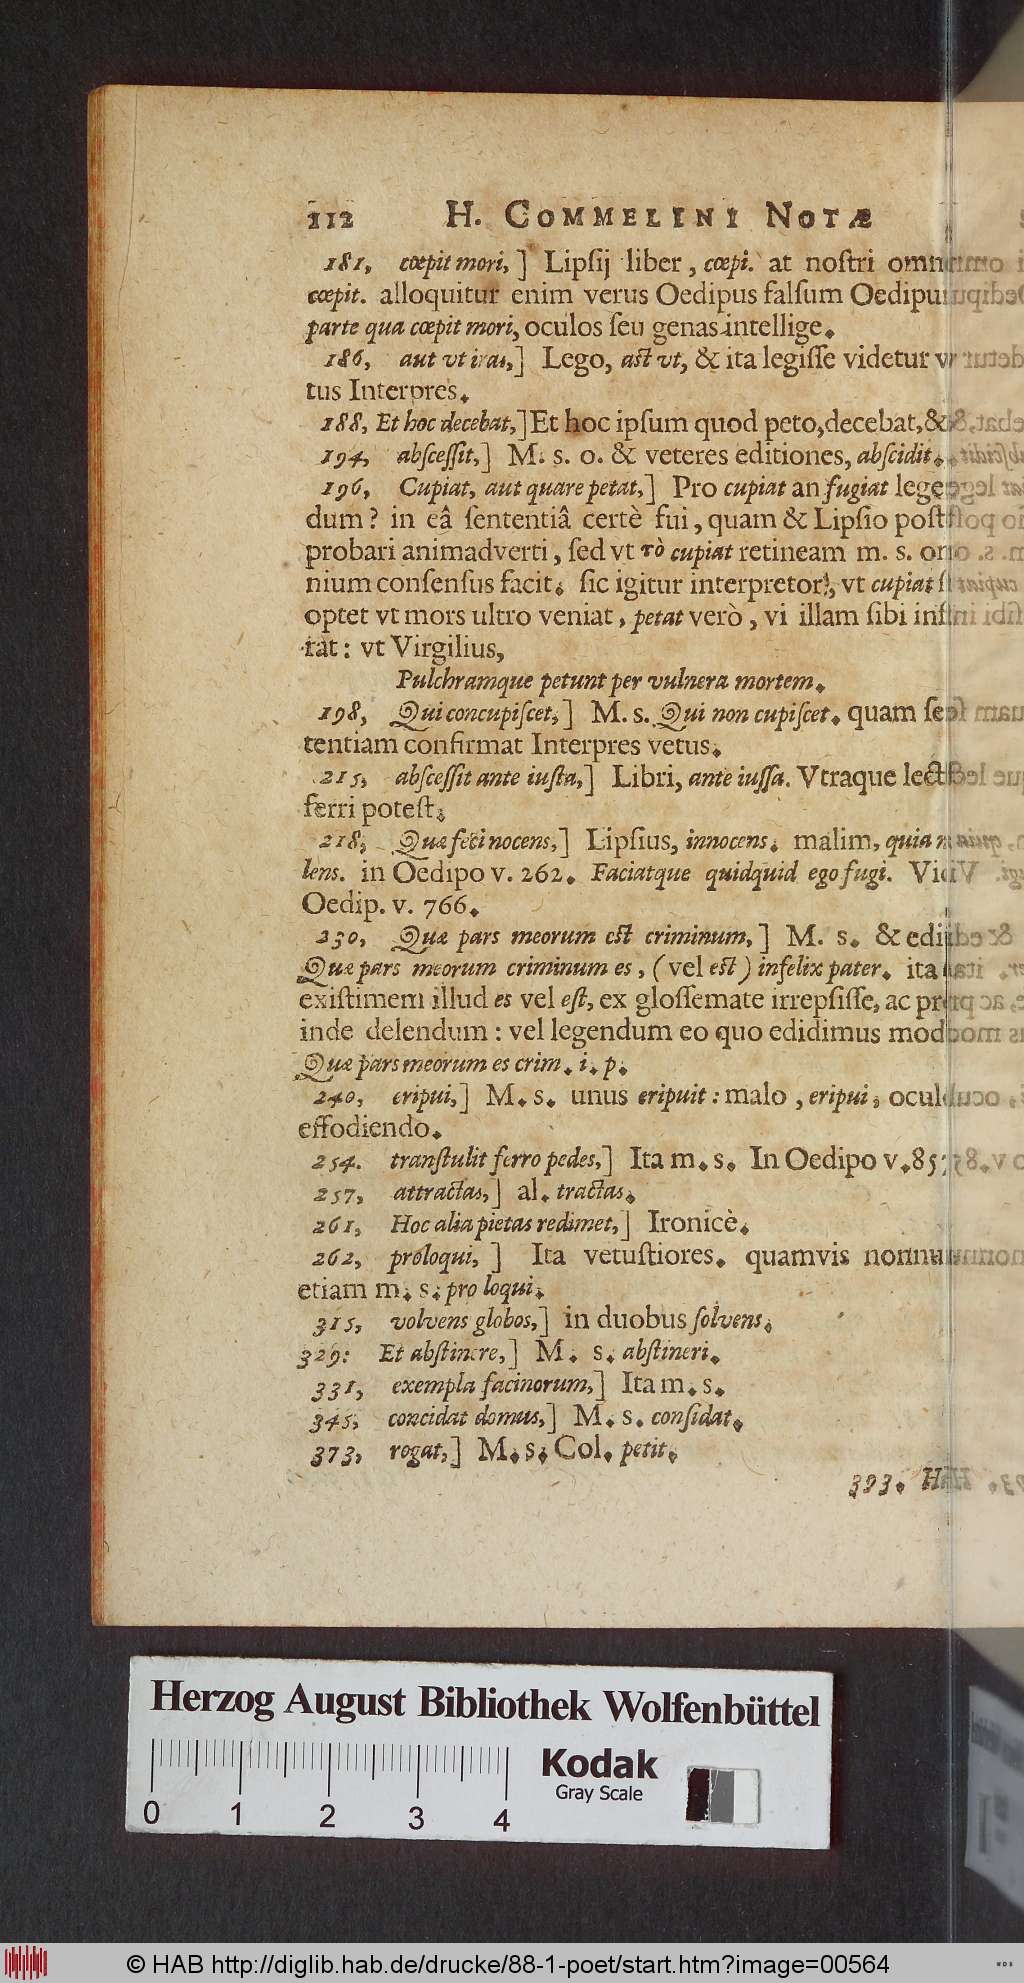 112 H. COMMELINI NOTÆ
181, cœpit mori,] Lipſij liber, cœpi. at noſtri omn
cœpit. alloquitur enim verus Oedipus falſum Oedipu
parte qua cœpit mori, oculos ſeu genas intellige.
186, aut vt iras,] Lego, aſt vt, & ita legiſſe videtur v
tus Interpres.
188, Et hoc decebat,] Et hoc ipſum quod peto, decebat, &
194, abſceſſit,] M. s. o. & veteres editiones, abſcidit.
196, Cupiat, aut quare petat,] Pro cupiat an fugiat lege
dum? in eâ ſententiâ certè fui, quam & Lipſio poſt
probari animadverti, ſed vt τὸ cupiat retineam m. s. o
nium conſenſus facit. ſic igitur interpretor, vt cupiat ſ
optet vt mors ultro veniat, petat verò, vi illam ſibi inf
rat: vt Virgilius,
Pulchramque petunt per vulnera mortem.
198, Qui concupiſcet,] M. s. Qui non cupiſcet. quam ſe
tentiam confirmat Interpres vetus.
215, abſceſſit ante iuſta,] Libri, ante iuſſa. Vtraque lect
ferri poteſt.
218, Quæ feci nocens,] Lipſius, innocens. malim, quia n
lens. in Oedipo v. 262. Faciatque quidquid ego fugi. Vi
Oedip. v. 766.
230, Quæ pars meorum eſt criminum,] M. s. & edi
Quæ pars meorum criminum es, (vel eſt) infelix pater. ita
exiſtimem illud es vel eſt, ex gloſſemate irrepſiſſe, ac pr
inde delendum: vel legendum eo quo edidimus mod
Quæ pars meorum es crim. i. p.
240, eripui,] M. s. unus eripuit: malo, eripui, ocul
effodiendo.
254. tranſtulit ferro pedes,] Ita m. s. In Oedipo v. 857
257, attractas,] al. tractas.
261, Hoc alia pietas redimet,] Ironicè.
262, proloqui,] Ita vetuſtiores. quamvis nonnu
etiam m. s. pro loqui.
315, volvens globos,] in duobus ſolvens.
329: Et abſtinere,] M. s. abſtineri.
331, exempla facinorum,] Ita m. s.
345, concidat domus,] M. s. conſidat.
373, rogat,] M. s. Col. petit.
393. H
Herzog August Bibliothek Wolfenbüttel
Kodak
Gray Scale
0 1 2 3 4
© HAB http://diglib.hab.de/drucke/88-1-poet/start.htm?image=00564